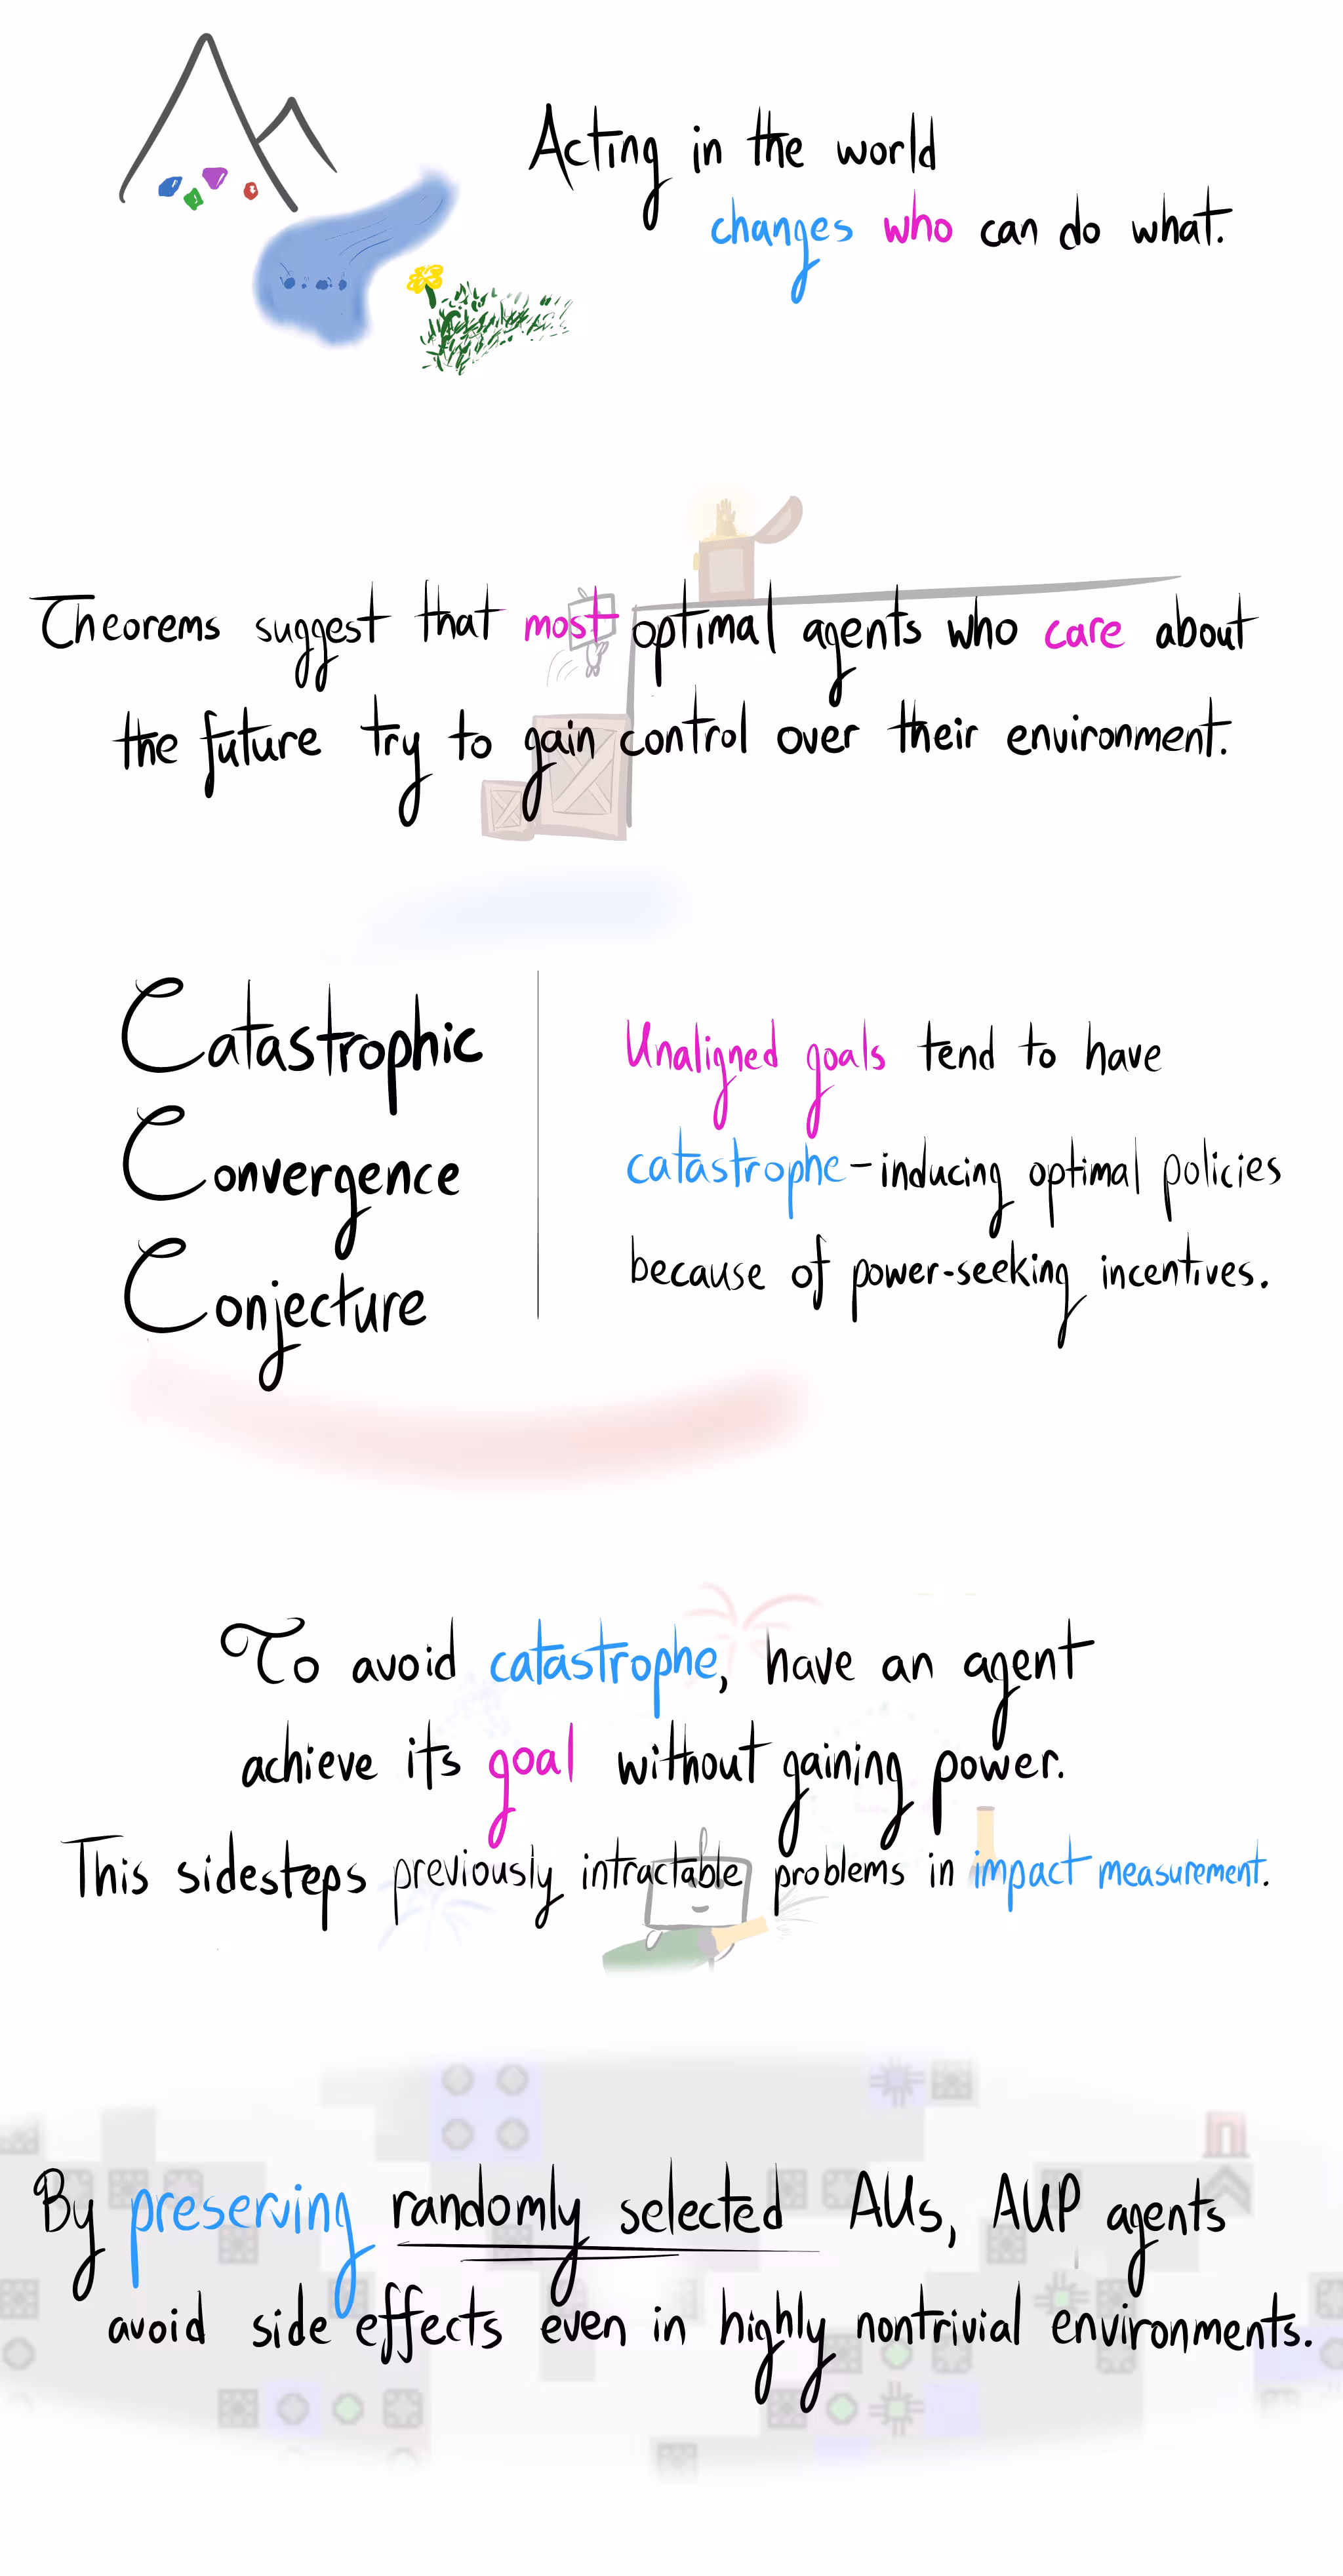 Acting in the world
changes who can do what.
Theorems suggest that most optimal agents who care about
the future try to gain control over their environment.
Catastrophic
Convergence
Conjecture
Unaligned goals tend to have
catastrophe-inducing optimal policies
because of power-seeking incentives.
To avoid catastrophe, have an agent
achieve its goal without gaining power.
This sidesteps previously intractable problems in impact measurement.
By preserving randomly selected AUs, AUP agents
avoid side effects even in highly nontrivial environments.